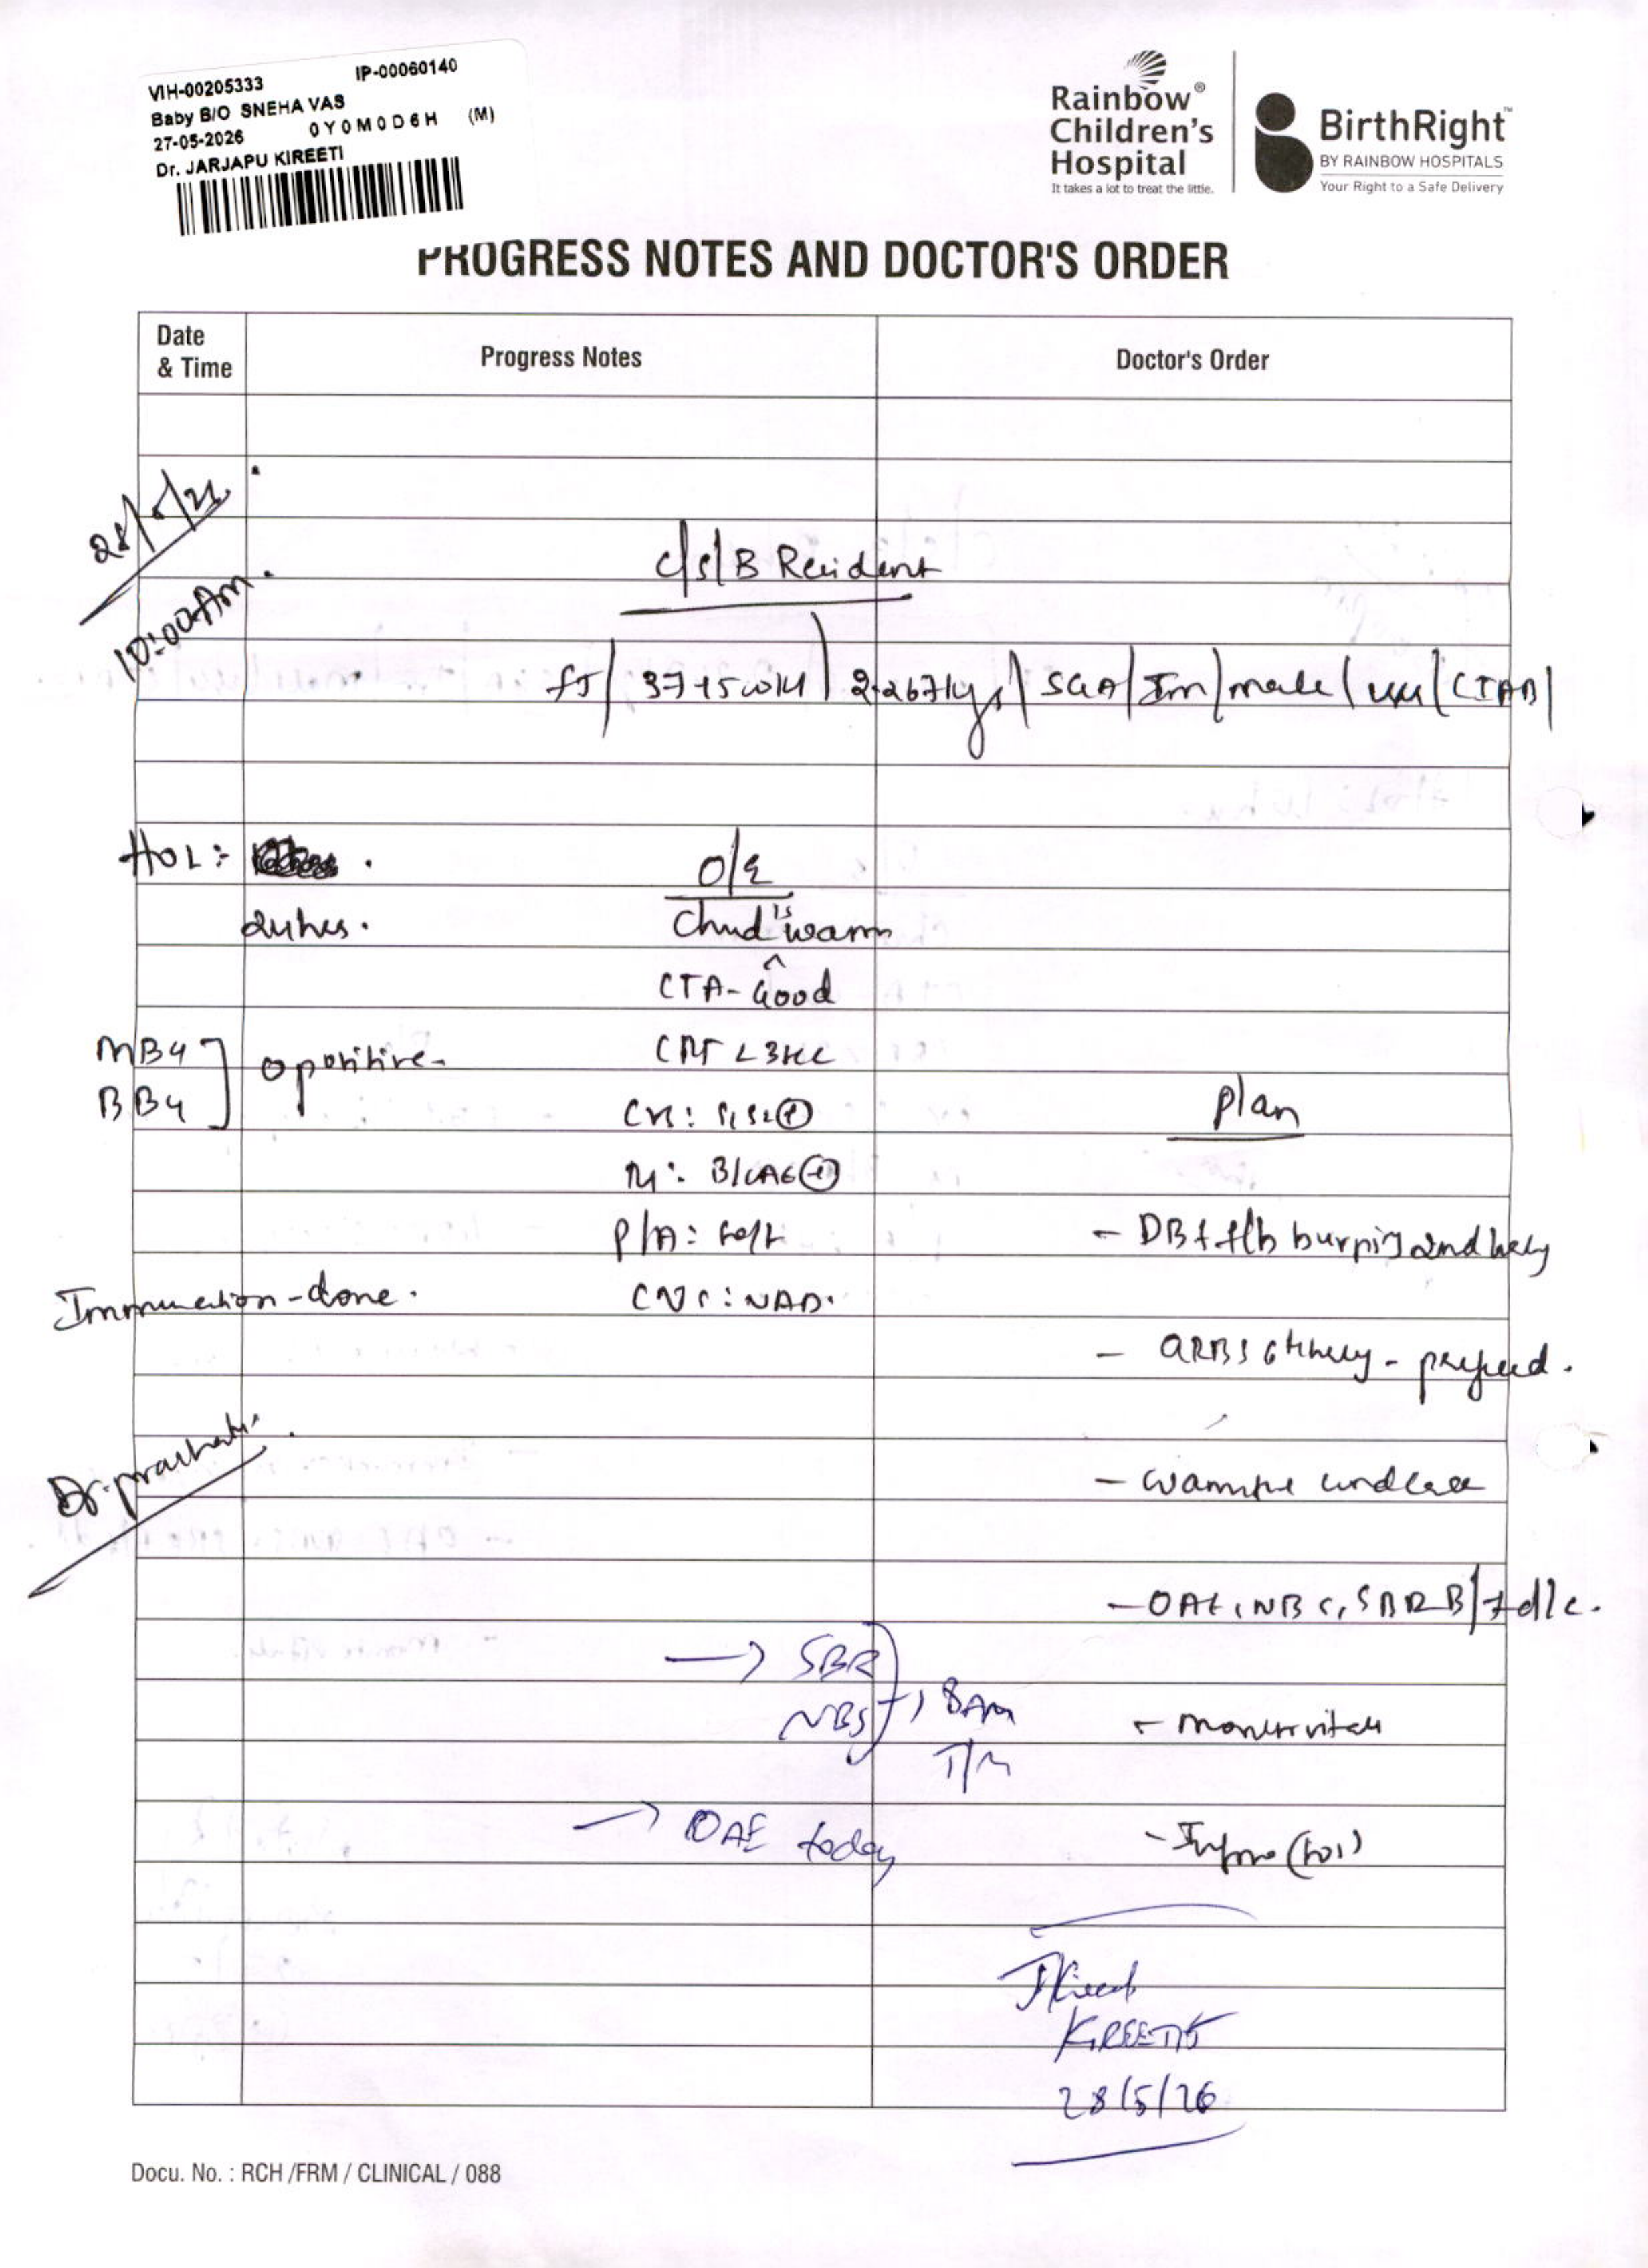 VIH-00205333 IP-00060140
Baby B/O SNEHA VAS
27-05-2026 0Y0M0D6H (M)
Dr. JARJAPU KIREETI
Rainbow®
Children's
Hospital
It takes a lot to treat the little.
BirthRight™
BY RAINBOW HOSPITALS
Your Right to a Safe Delivery
PROGRESS NOTES AND DOCTOR'S ORDER
Date
& Time
Progress Notes
Doctor's Order
10:00Am.
C/S/B Resident
37+5 2.267kgs SGA / Im / male / / CIAB /
HOL:
O/E
Child is warm
CTA- Good
O positive-
CRT < 3sec
CVS: S1S2 ⊕
plan
B/LAE ⊕
P/A: soft
- DBF f/b burping and
CNS: NAD.
- done.
- GRBS 6thhrly -
-
- OAE, NBS, SBR B/f d/c.
→ SBR
NBS → 8Am
T/M
- monitor vitals
→ OAE today
- Inform (SOS)
KIREETI
28/5/26
Docu. No. : RCH /FRM / CLINICAL / 088